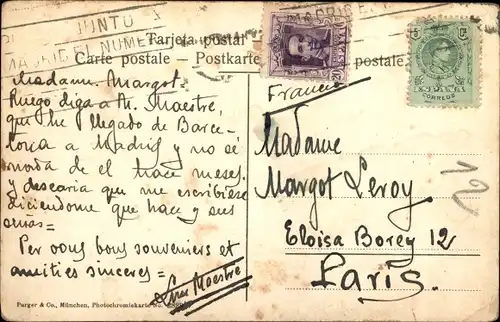 JUNTO
NUMERO
Tarjeta postal
Carte postale — Postkarte postale.
20
CORREOS
Francia
Madame. Margot.
Ruego diga a Mr. Maestre,
que he llegado de Barce-
lona a Madrid y no sé
nada de el hace meses.
y desearia que me escribiese
diciendome que hace y sus
señas=
Per vous bons souvenirs et
amitiés sinceres=
Maestre
Madame
Margot Leroy
Eloisa Borey 12
Paris.
12
Purger & Co., München, Photochromiekarte No.